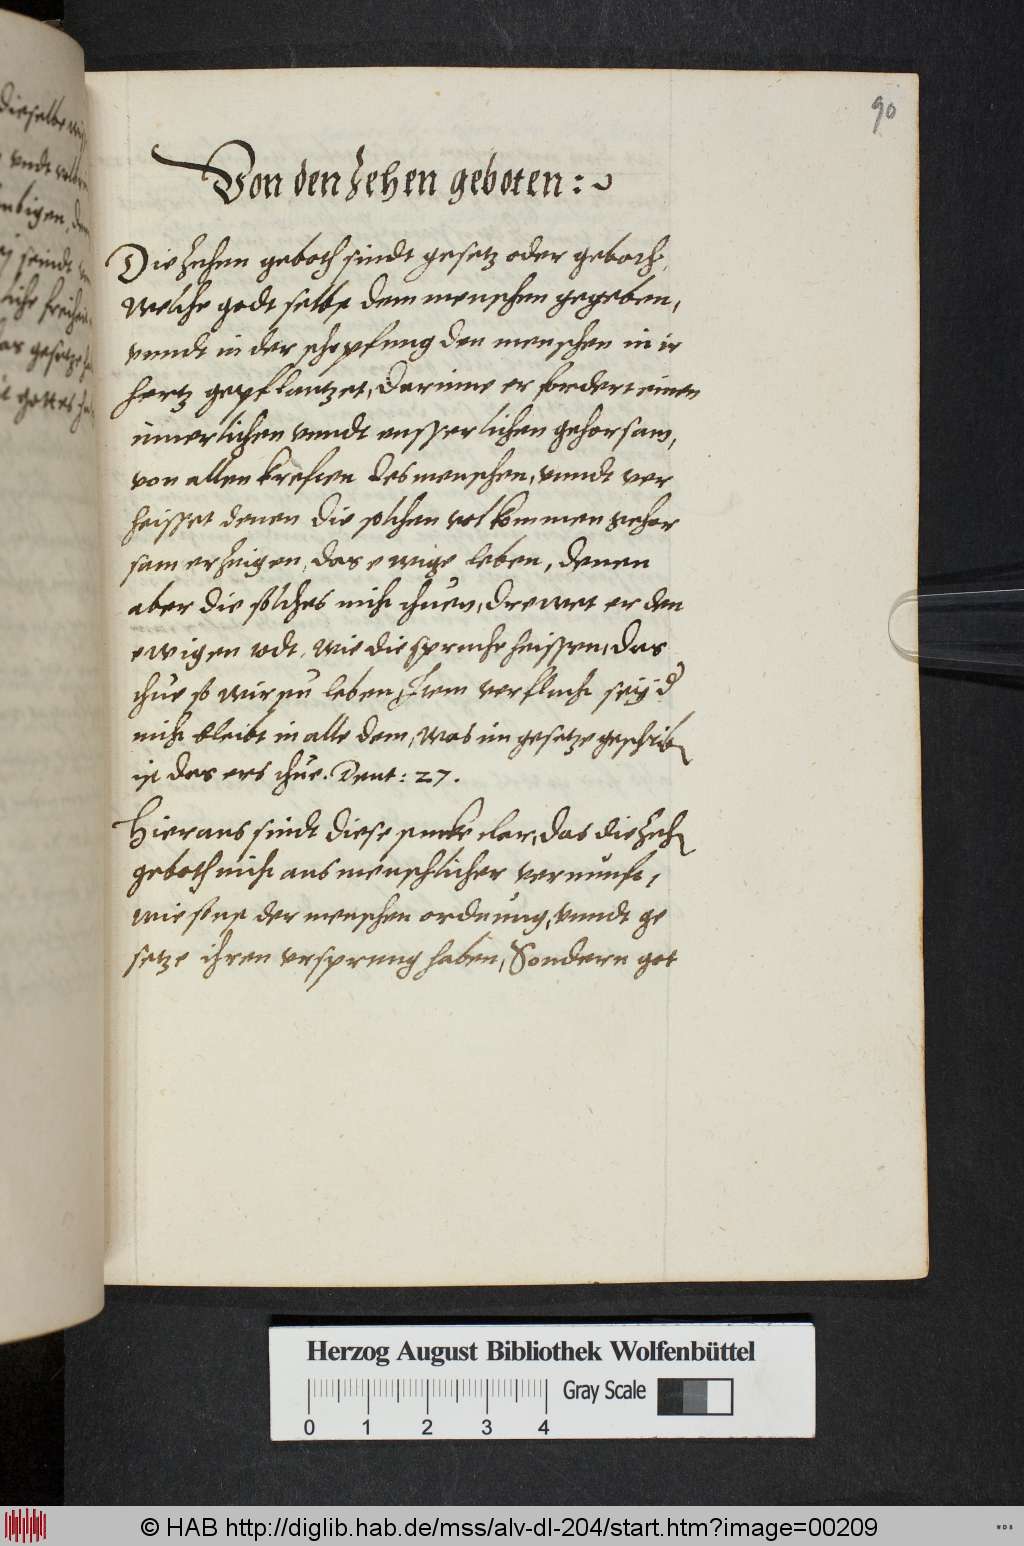 90
Von den Zehen geboten:
Die Zehen geboth sindt gesetz oder geboth,
Welche godt selbs dem menschen gegeben,
vnndt in der schepfung den menschen in ir
hertz gepflantzet, Darinne er fordert einen
innerlichen vnndt eusserlichen gehorsam,
von allen kreften des menschen, vnndt ver
heisset denen die solchen volkommen gehor
sam erzeigen, das ewige leben, denen
aber die solches nicht thuen, drewet er den
ewigen todt, wie die spruche heissen, das
thue so wirstu leben, Item verflucht seij d
nicht bleibt in alle dem, was im gesetze geschrib
ist das ers thue. Deut: 27.
Hieraus sindt diese stucke clar, das die Zeh
geboth nicht aus menschlicher vernunft,
wie sonst der menschen ordnung, vnndt ge
setze ihren vrsprung haben, Sondern got
dieselbe
vndt
seindt
gesetze
gottes
Herzog August Bibliothek Wolfenbüttel
Gray Scale
0 1 2 3 4
© HAB http://diglib.hab.de/mss/alv-dl-204/start.htm?image=00209